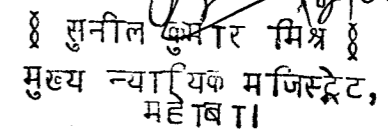 ( सुनील कुमार मिश्र )
मुख्य न्यायिक मजिस्ट्रेट,
महोबा।